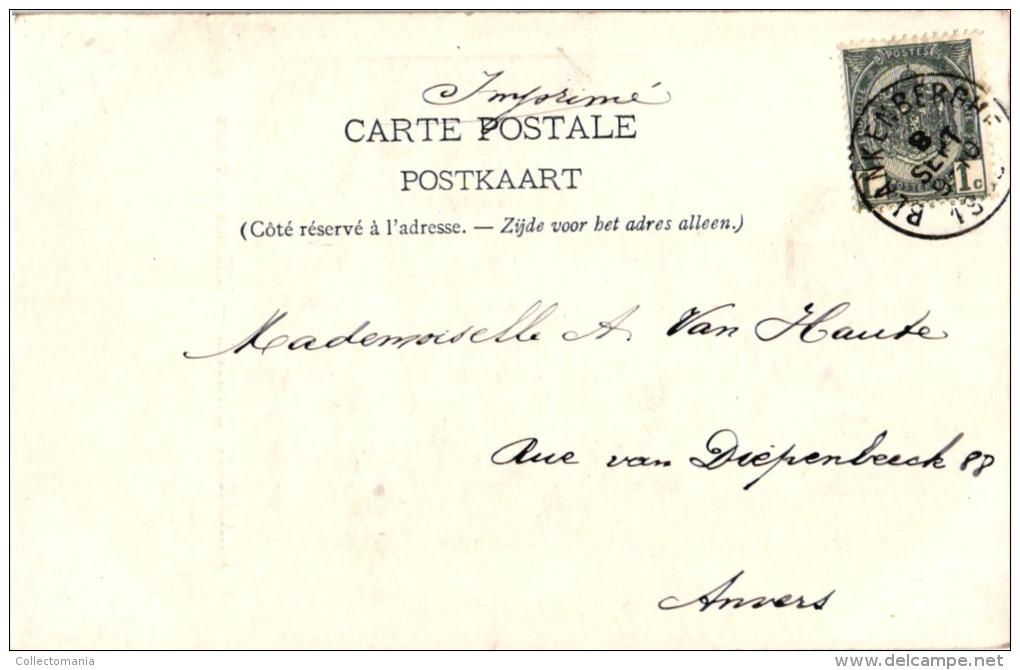 Imprimé
CARTE POSTALE
POSTKAART
(Côté réservé à l'adresse. — Zijde voor het adres alleen.)
POSTES
1 1c
BLANKENBERGHE
8
SEPT
Mademoiselle A. Van Haute
Rue van Diepenbeeck 88
Anvers
Collectomania
www.delcampe.net